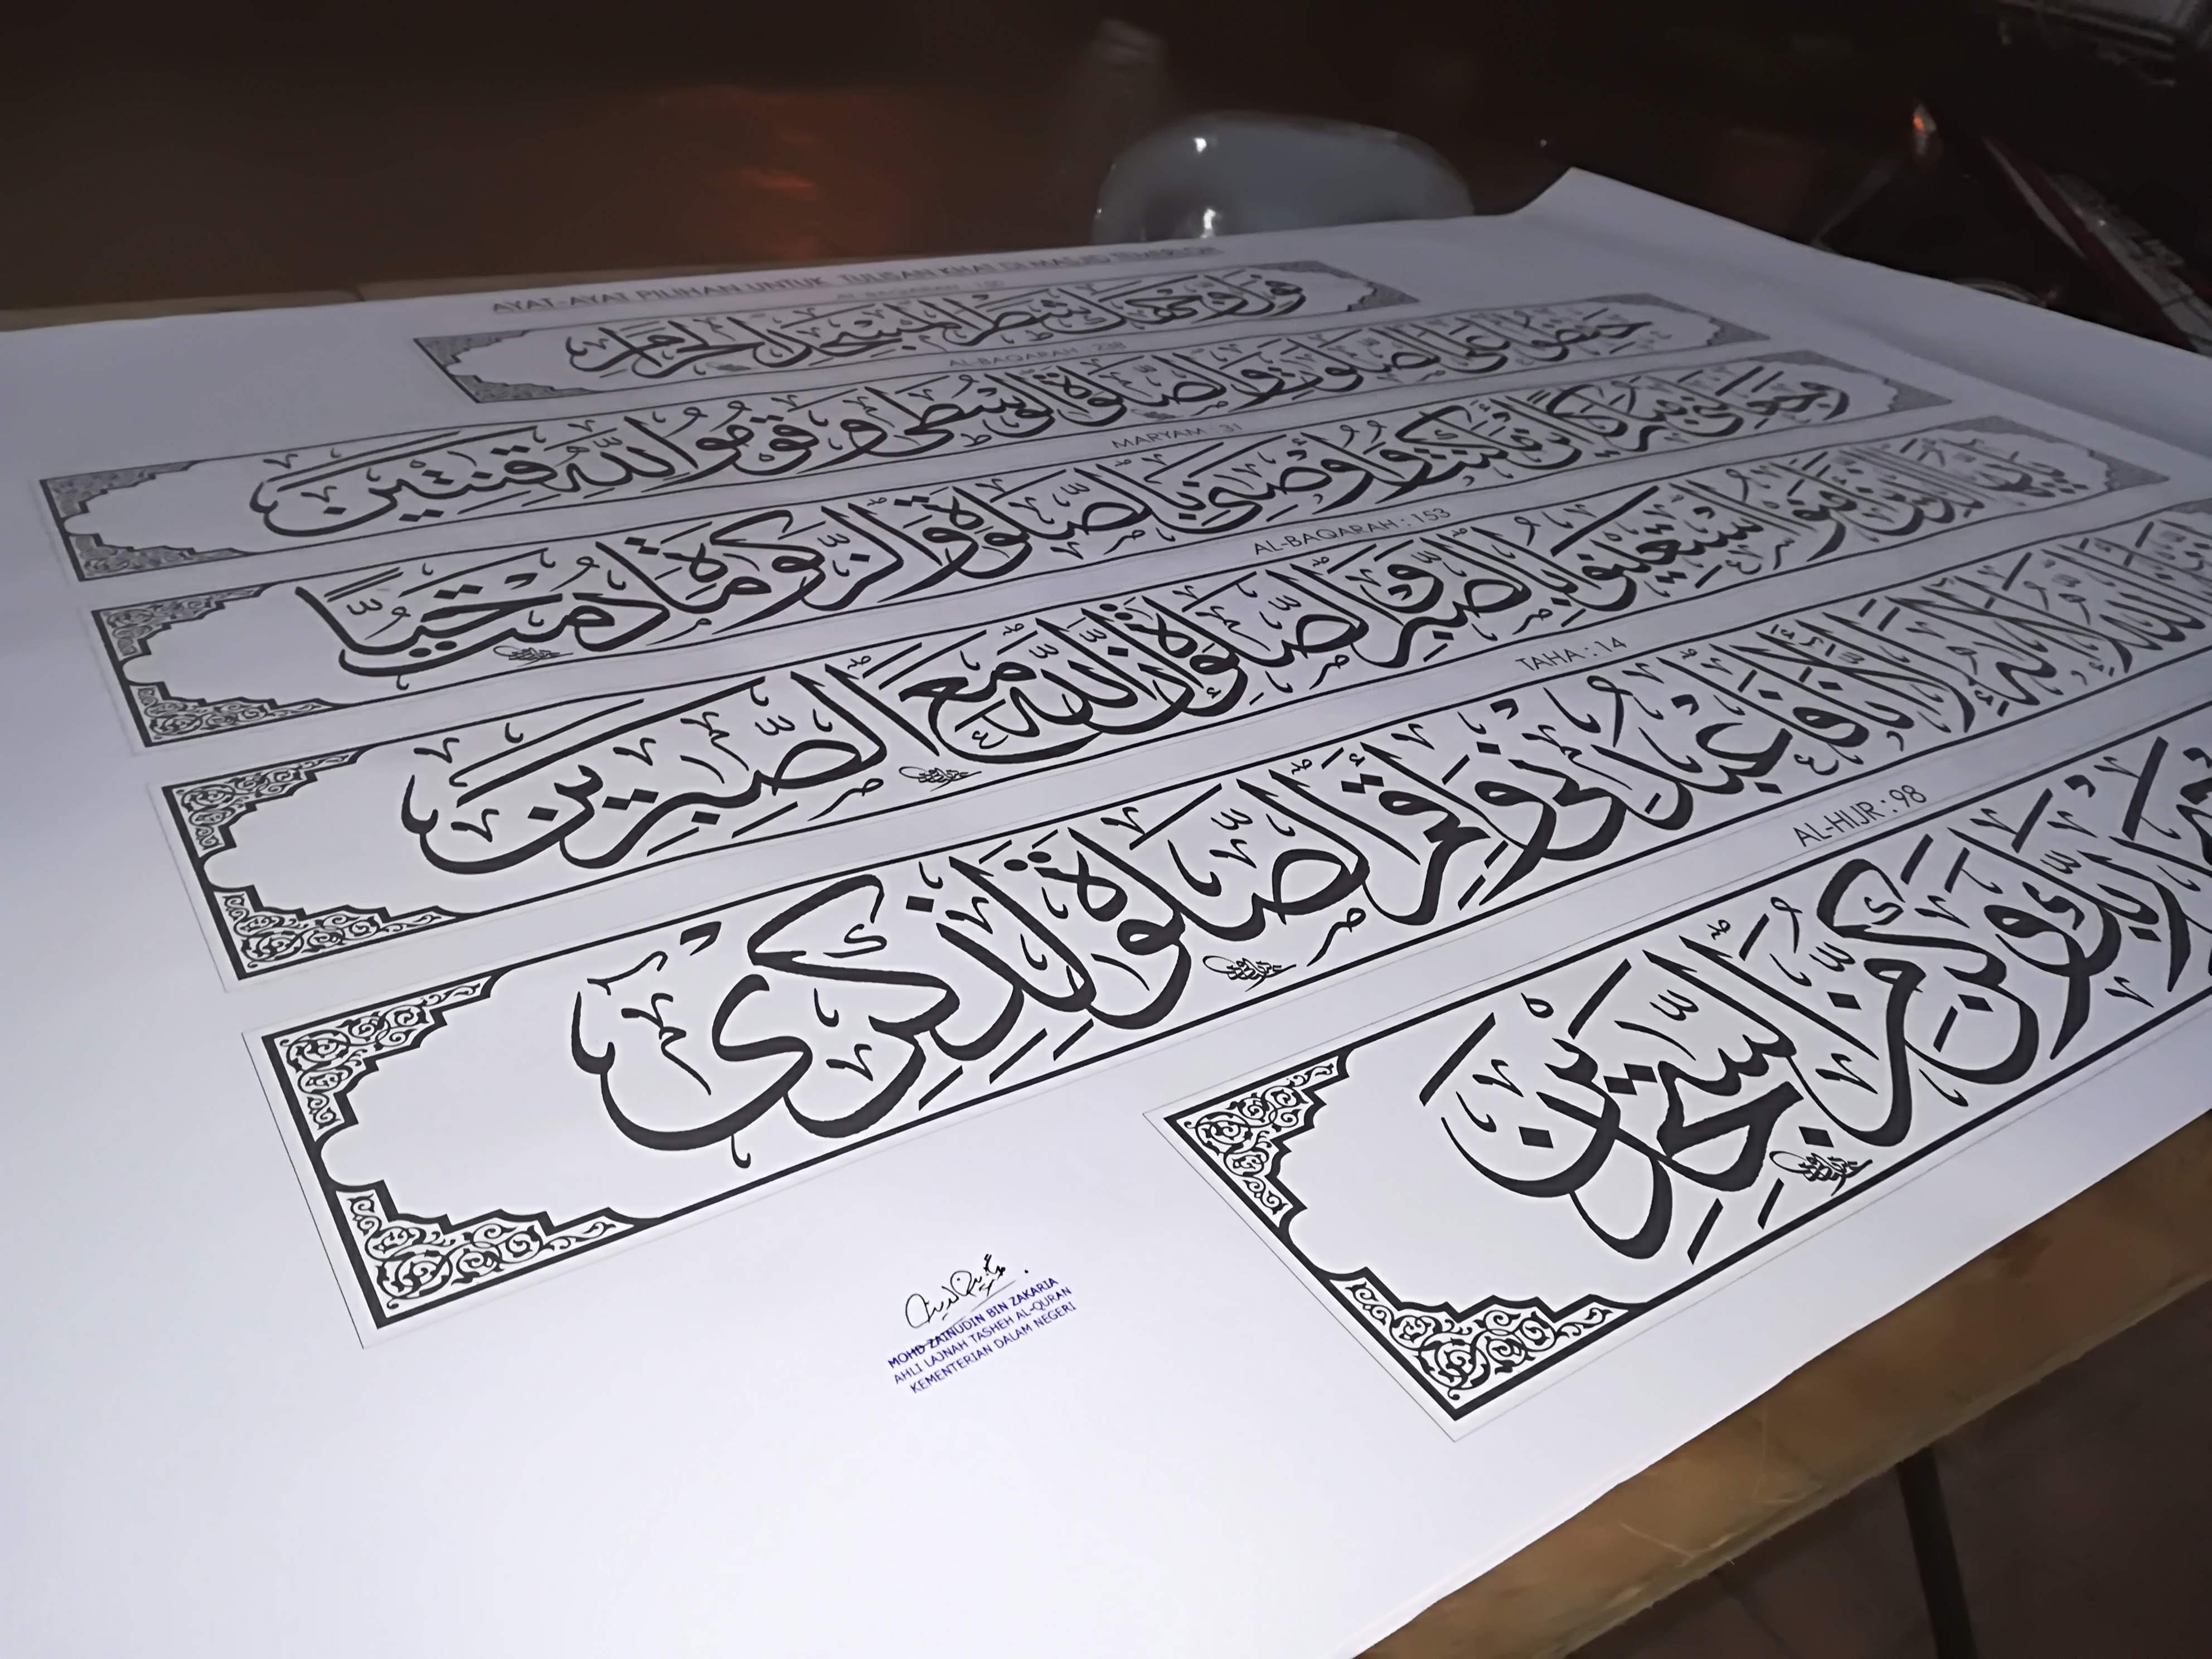 AYAT-AYAT PILIHAN UNTUK TULISAN KHAT DI MASJID
فول وجهك شطر المسجد الحرام
AL-BAQARAH : 238
حفظوا على الصلوت والصلوة الوسطى وقوموا لله قنتين
MARYAM : 31
وجعلنى مباركا أين ما كنت وأوصنى بالصلوة والزكوة ما دمت حيا
AL-BAQARAH : 153
يأيها الذين ءامنوا استعينوا بالصبر والصلوة إن الله مع الصبرين
TAHA : 14
الله لا إله إلا أنا فاعبدنى وأقم الصلوة لذكرى
AL-HIJR : 98
ربك وكن من السجدين
MOHD ZAINUDIN BIN ZAKARIA
AHLI LAJNAH TASHEH AL-QURAN
KEMENTERIAN DALAM NEGERI